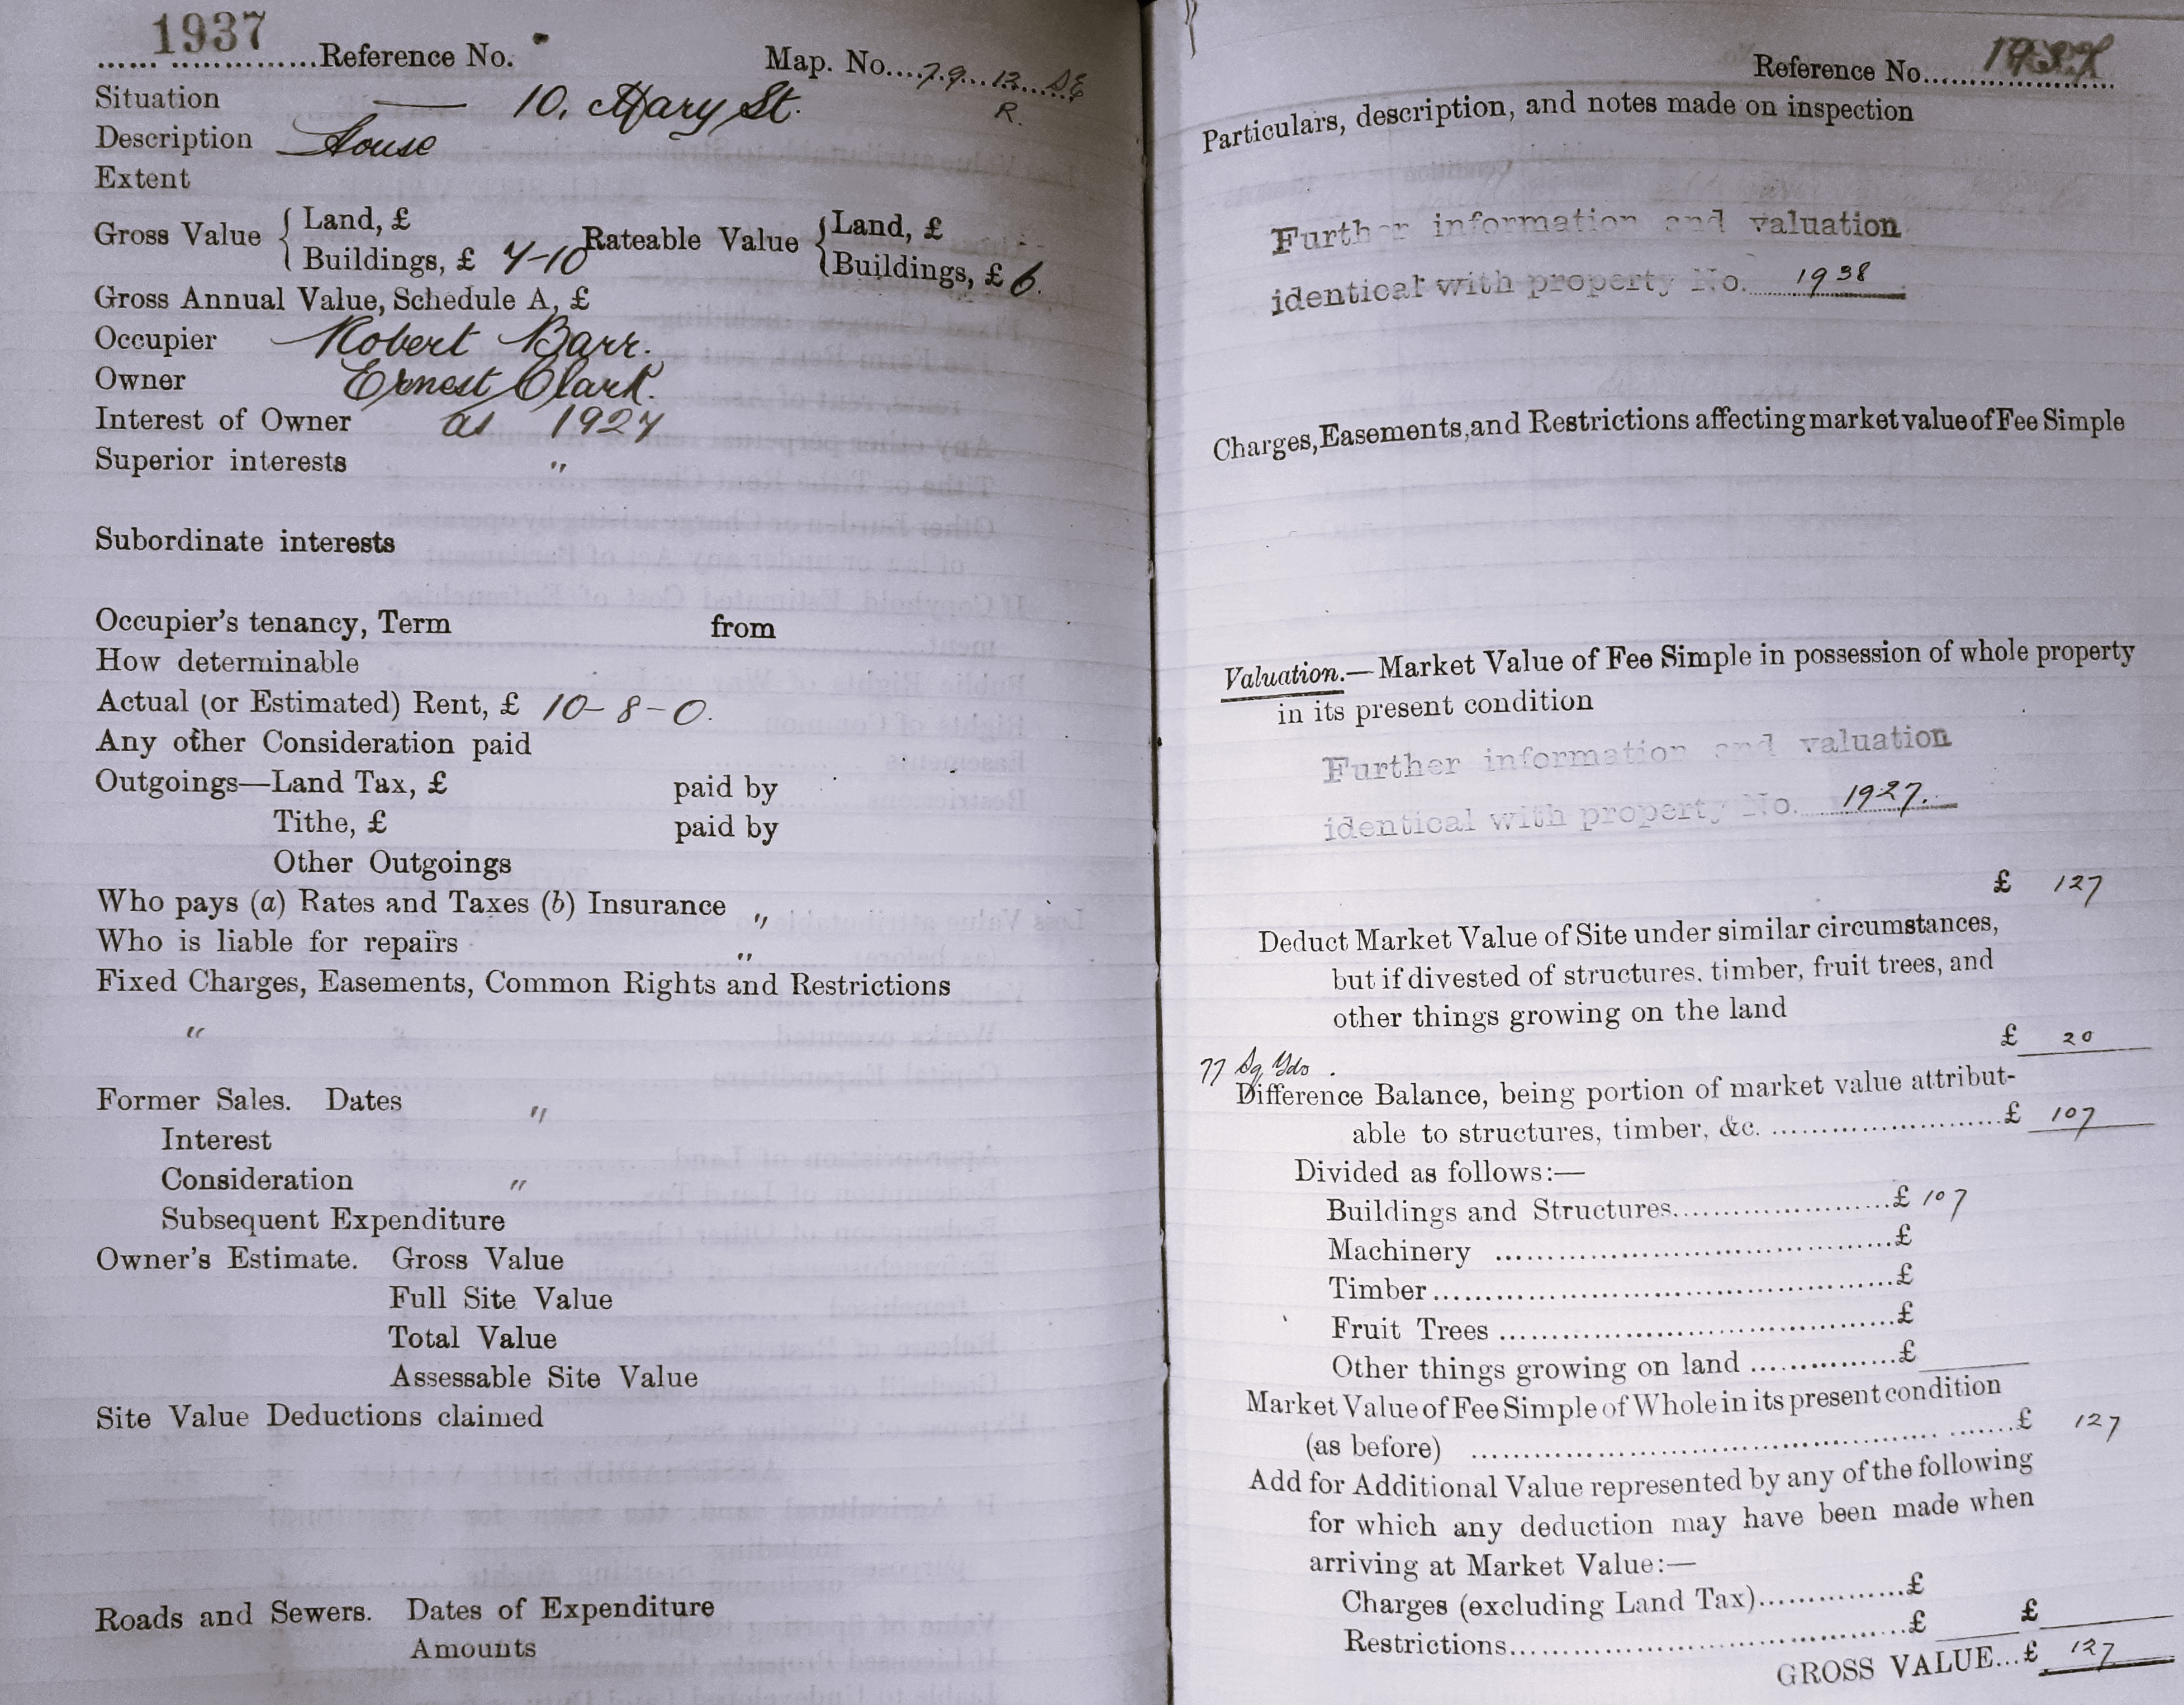 1937
Reference No. Map. No. 79 12 SE
R.
Situation — 10, Mary St.
Description House
Extent
Gross Value { Land, £ Rateable Value { Land, £
Buildings, £ 7-10 Buildings, £ 6.
Gross Annual Value, Schedule A, £
Occupier Robert Barr.
Owner Ernest Clark.
Interest of Owner as 1927
Superior interests "
Subordinate interests
Occupier's tenancy, Term from
How determinable
Actual (or Estimated) Rent, £ 10-8-0.
Any other Consideration paid
Outgoings—Land Tax, £ paid by
Tithe, £ paid by
Other Outgoings
Who pays (a) Rates and Taxes (b) Insurance "
Who is liable for repairs "
Fixed Charges, Easements, Common Rights and Restrictions
"
Former Sales. Dates "
Interest
Consideration "
Subsequent Expenditure
Owner's Estimate. Gross Value
Full Site Value
Total Value
Assessable Site Value
Site Value Deductions claimed
Roads and Sewers. Dates of Expenditure
Amounts
Reference No. 1937
Particulars, description, and notes made on inspection
Further information and valuation
identical with property No. 1938
Charges, Easements, and Restrictions affecting market value of Fee Simple
Valuation.—Market Value of Fee Simple in possession of whole property
in its present condition
Further information and valuation
identical with property No. 1927.
£ 127
Deduct Market Value of Site under similar circumstances,
but if divested of structures, timber, fruit trees, and
other things growing on the land
£ 20
77 Sq Yds.
Difference Balance, being portion of market value attribut-
able to structures, timber, &c. £ 107
Divided as follows:—
Buildings and Structures £ 107
Machinery £
Timber £
Fruit Trees £
Other things growing on land £
Market Value of Fee Simple of Whole in its present condition
(as before) £ 127
Add for Additional Value represented by any of the following
for which any deduction may have been made when
arriving at Market Value:—
Charges (excluding Land Tax) £
Restrictions £ £
GROSS VALUE...£ 127